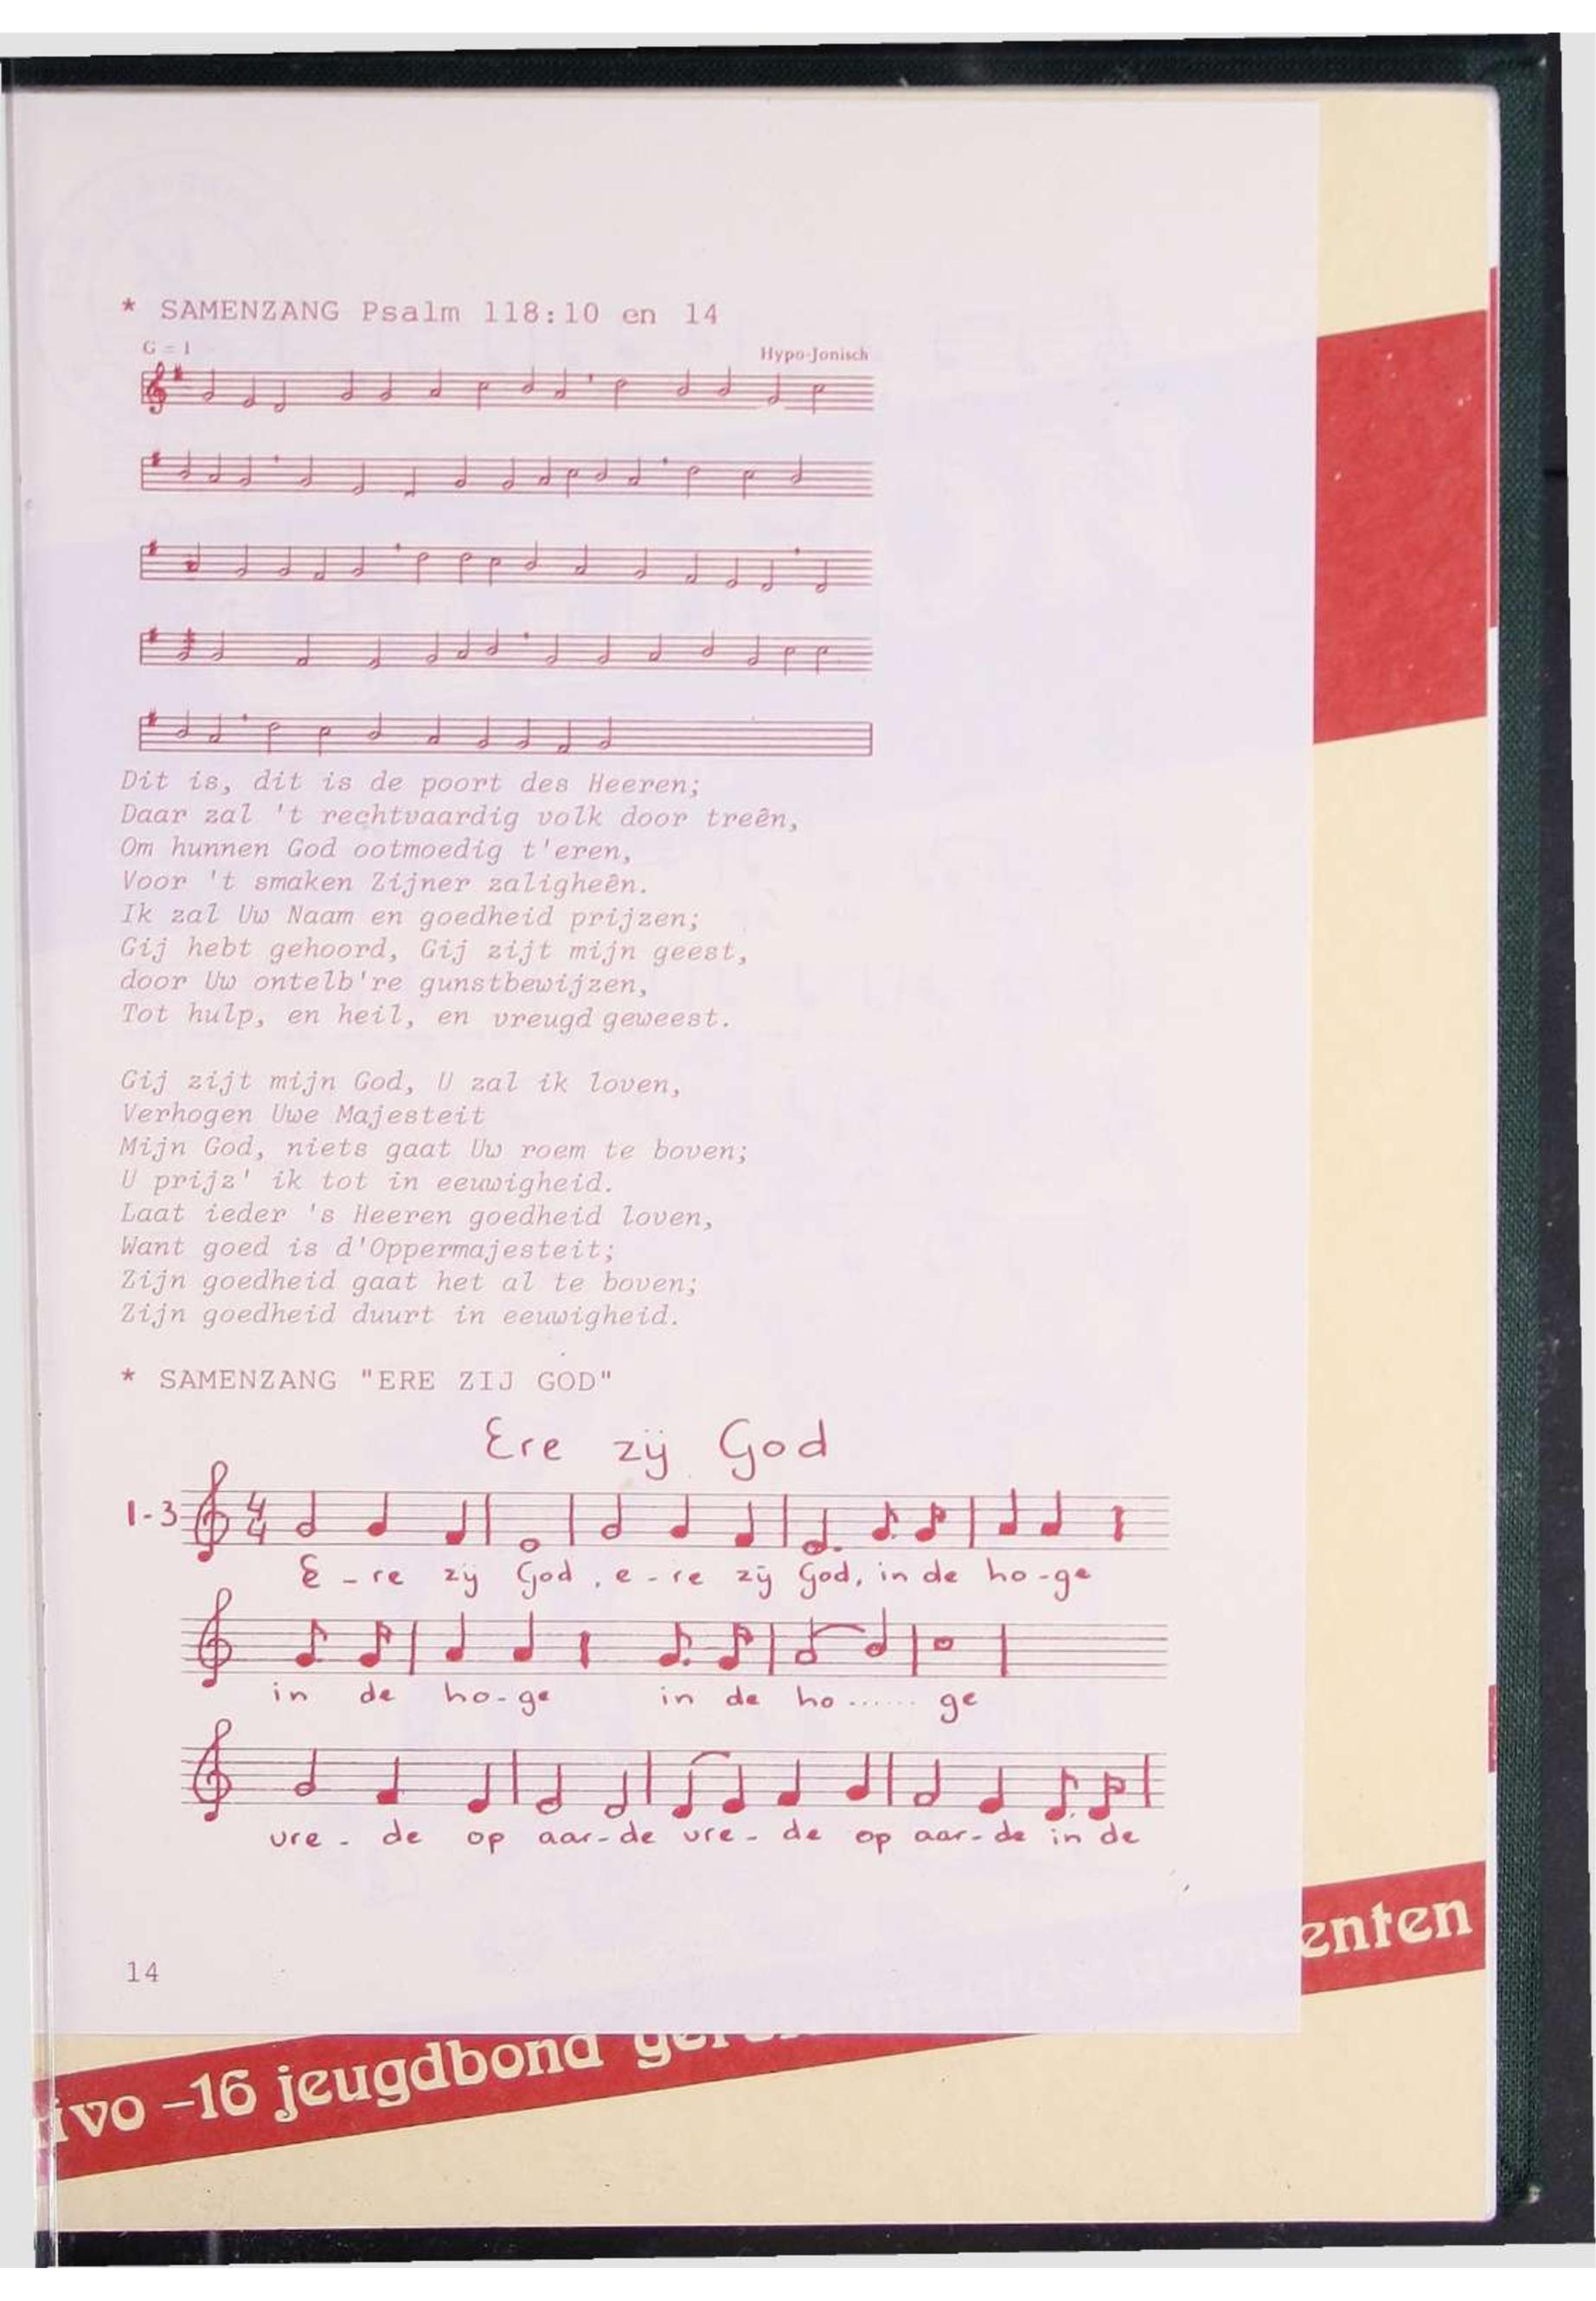 * SAMENZANG Psalm 118:10 en 14
G = 1
Hypo-Jonisch
Dit is, dit is de poort des Heeren;
Daar zal 't rechtvaardig volk door treên,
Om hunnen God ootmoedig t'eren,
Voor 't smaken Zijner zaligheên.
Ik zal Uw Naam en goedheid prijzen;
Gij hebt gehoord, Gij zijt mijn geest,
door Uw ontelb're gunstbewijzen,
Tot hulp, en heil, en vreugd geweest.
Gij zijt mijn God, U zal ik loven,
Verhogen Uwe Majesteit
Mijn God, niets gaat Uw roem te boven;
U prijz' ik tot in eeuwigheid.
Laat ieder 's Heeren goedheid loven,
Want goed is d'Oppermajesteit;
Zijn goedheid gaat het al te boven;
Zijn goedheid duurt in eeuwigheid.
* SAMENZANG "ERE ZIJ GOD"
Ere zij God
1-3 4/4
E - re zij God, e - re zij God, in de ho - ge
in de ho - ge in de ho ...... ge
vre - de op aar - de vre - de op aar - de in de
14
enten
ivo -16 jeugdbond